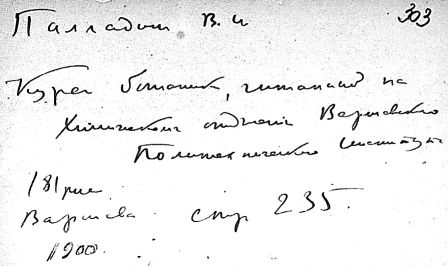 Палладин В. И 303
Курс ботаники, читанный на
Химическом отделении Варшавского
Политехнического Института
181 рис
Варшава стр 235.
1900.